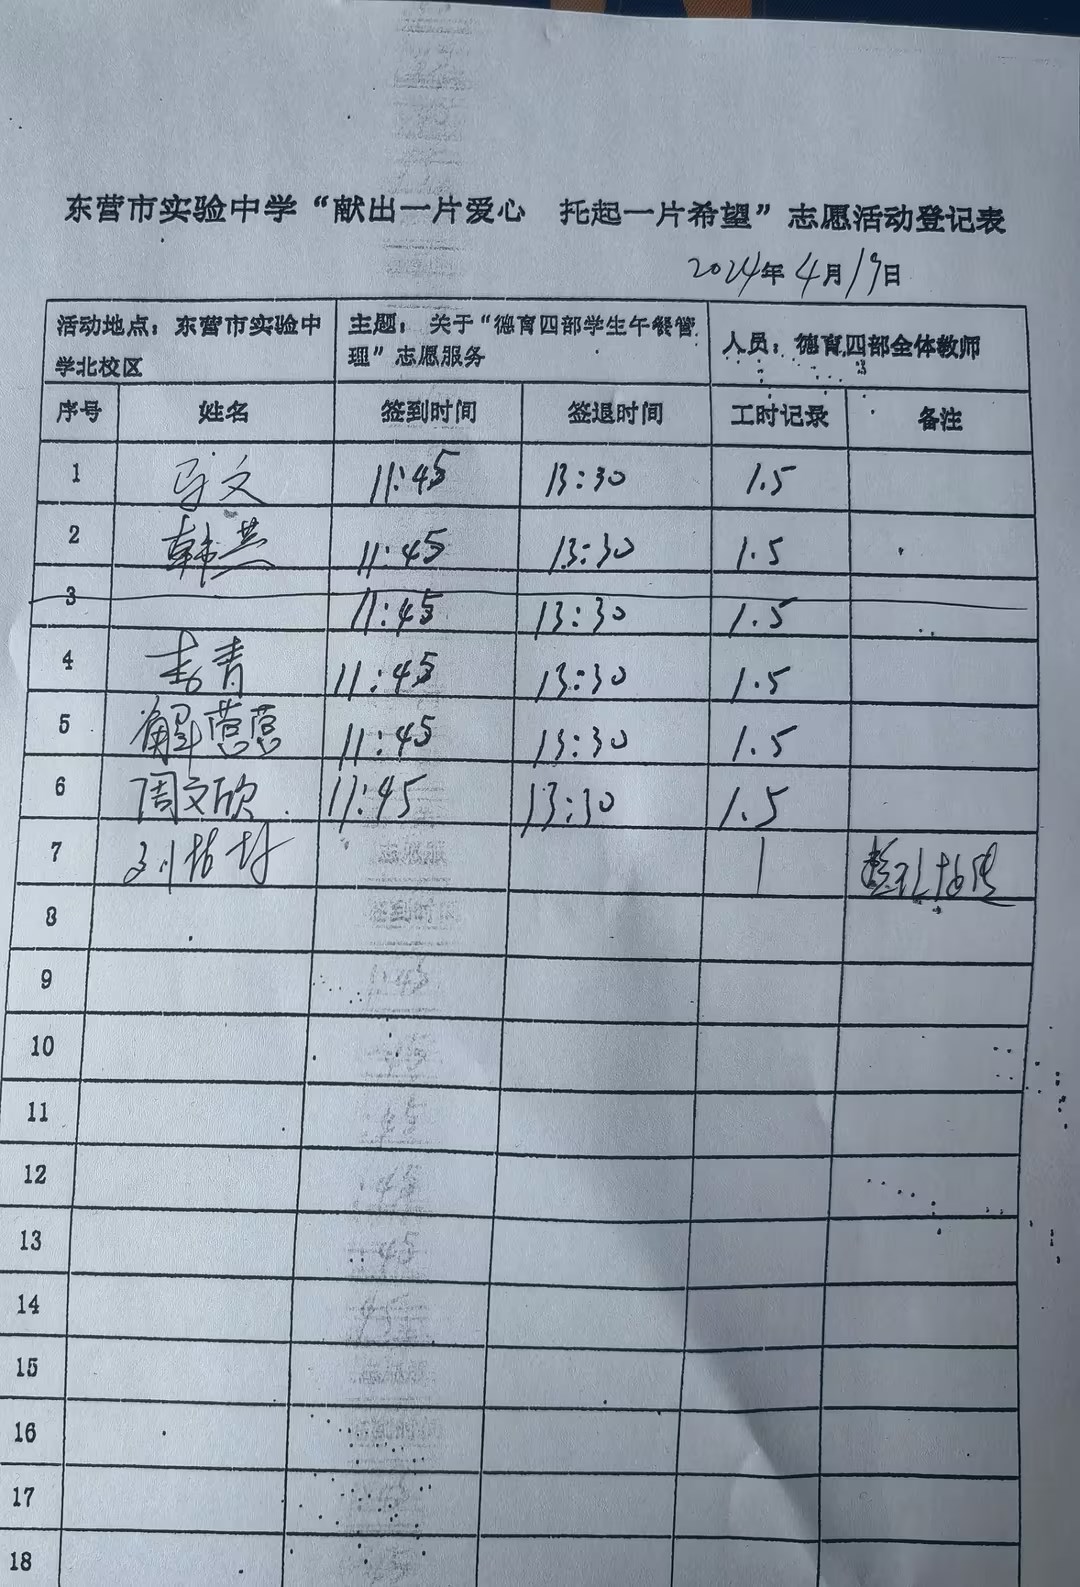 东营市实验中学“献出一片爱心 托起一片希望”志愿活动登记表
2024年4月19日
活动地点：东营市实验中
学北校区
主题：关于“德育四部学生午餐管
理”志愿服务
人员：德育四部全体教师
序号 姓名 签到时间 签退时间 工时记录 备注
1 马文 11:45 13:30 1.5
2 韩燕 11:45 13:30 1.5
3 11:45 13:30 1.5
4 李青 11:45 13:30 1.5
5 解蕙蕙 11:45 13:30 1.5
6 周文欣 11:45 13:30 1.5
7 刘 1
8
9
10
11
12
13
14
15
16
17
18